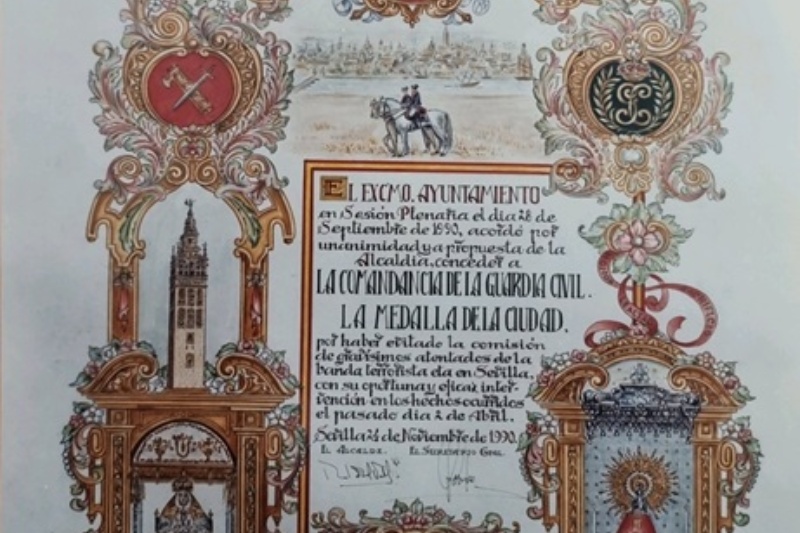 EL EXCMO. AYUNTAMIENTO
en Sesión Plenaria el día 28 de
Septiembre de 1990, acordó por
unanimidad y a propuesta de la
Alcaldía, conceder a
LA COMANDANCIA DE LA GUARDIA CIVIL.
LA MEDALLA DE LA CIUDAD.
por haber evitado la comisión
de gravísimos atentados de la
banda terrorista eta en Sevilla,
con su oportuna y eficaz inter-
vención en los hechos ocurridos
el pasado día 2 de Abril.
Sevilla 26 de Noviembre de 1990.
EL ALCALDE. EL SECRETARIO GRAL.